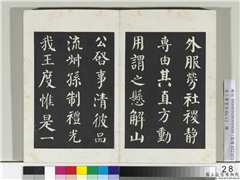 外服勞社稷靜
專由其直方動
用謂之懸解山
公啓事清彼品
流叔孫制禮光
我王度惟是一
28